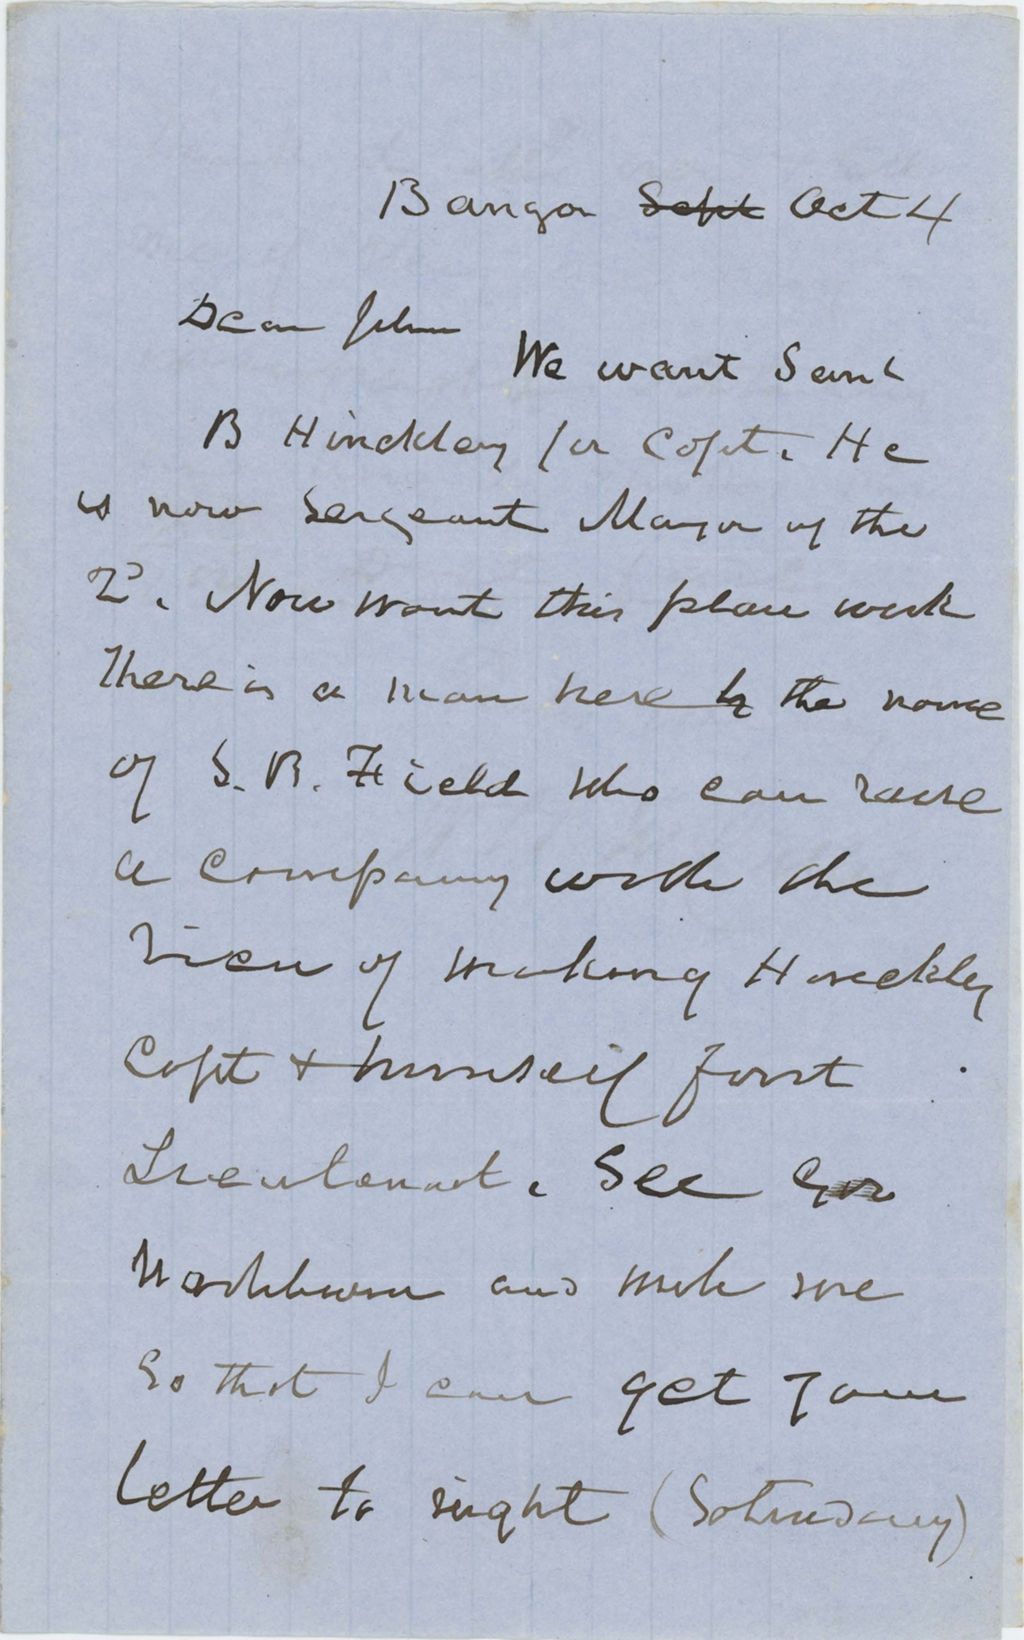 Bangor Sept Oct 4
Dear John
We want Saml
B Hinckley for Capt. He
is now Sergeant Major of the
2d. Now want this place
There is a man here by the name
of S. B. Field who can raise
a company with the
view of making Hinckley
Capt & himself first
Lieutenant. See Gov
Washburn and me
So that I can get your
letter to night (Saturday)